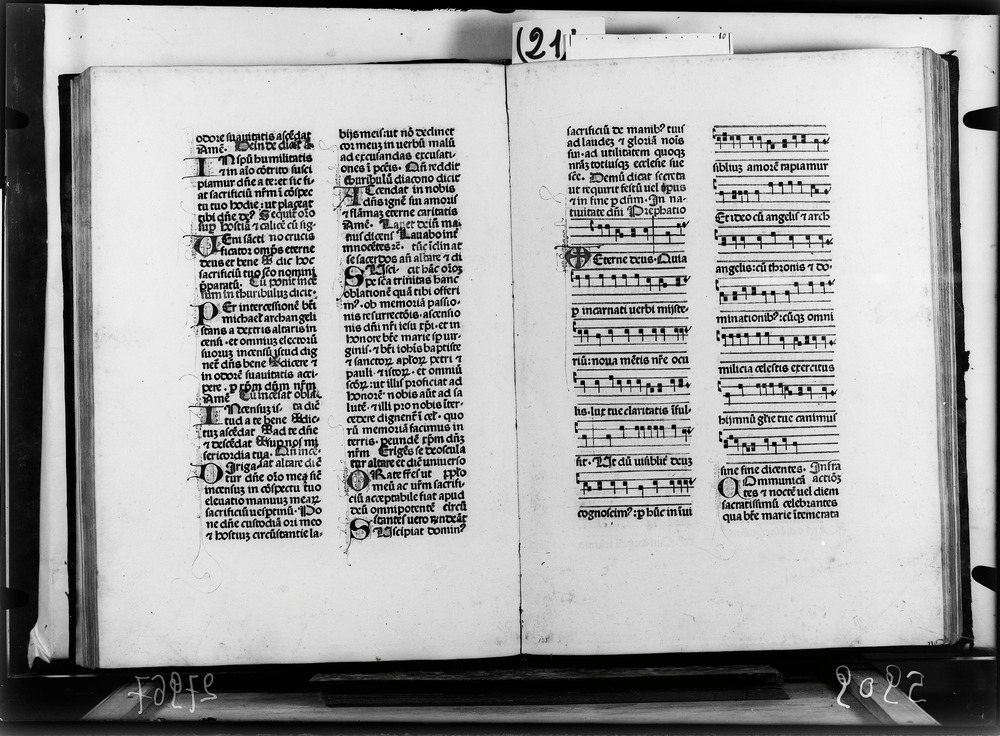 (21)
10
odore suauitatis ascēdat
Amē. Dein de dicat
IN spū humilitatis
⁊ in aīo cōtrito susci
piamur dñe a te: et sic fi-
at sacrificiū nr̄m ī cōspec
tu tuo hodie: ut placeat
tibi dñe dꝰ Sequit oro
sup hostiā ⁊ calicē cū sig-
VEni sācti no crucis
ficator om̄ps eterne
deus et bene ✠ dic hoc
sacrificiū tuo sc̄o nomini
p̄paratū. Tū ponit incē
sum in thuribulū dicit.
PEr intercessionē bt̄i
michael archangeli
stans a dextris altaris in
censi. et omniuꝫ electorū
suoruꝫ incensū istud dig
net dñs bene ✠ dicere ⁊
in odorē suauitatis acci-
pere. p xp̄m dūm nr̄m
Amē Tū incēsat obla.
INcensuꝫ is ta diē
tud a te bene ✠dic-
tuꝫ ascēdat ✠ad te dñe
⁊ descēdat ✠sup nos mi
sericordia tua. Dū incē-
DIriga sat altare diē
tur dñe oro mea sič
incensuꝫ in cōspectu tuo
eleuatio manuuꝫ meaꝝ
sacrificiū uesptinū. Po
ne dñe custodiā ori meo
⁊ hostiuꝫ circūstantie la-
bijs meis: ut nō declinet
cor meuꝫ in uerbū malū
ad excusandas excusati-
ones ī pc̄cis. Qn̄ reddit
thuribulū diacono dicit
ACcendat in nobis
dn̄s ignē sui amoris
⁊ flāmaꝫ eterne caritatis
Amē. Lauet dein̄ ma-
nus dicens Lauabo int̄
innocētes rē. tūc īclinat
se sacerdos añ altare ⁊ di
SUsci cit hāc oroꝫ
pe sc̄a trinitas hanc
oblationē quā tibi offeri
mꝰ. ob memoriā passio-
nis resurrectōis. ascensio
nis dn̄i nr̄i iesu xp̄i. et in
honore bt̄e marie sp uir-
ginis. ⁊ bt̄i ioh̄is baptiste
⁊ sanctoꝝ aplōꝝ petri ⁊
pauli. ⁊ istoꝝ. et omniū
scōꝝ: ut illis proficiat ad
honorē. nobis aūt ad sa
lutē. ⁊ illi pro nobis īter-
cedere dignent̄ ī cel. quo
rū memoriā facimus in
terris. p eundē xp̄m dn̄ꝫ
nr̄m Erigēs se deoscula
tur altare et diē uniuerso
ORate fr̄es ut pplō
meū ac ur̄m sacrifi-
ciū acceptabile fiat apud
deū omnipotentē circū
Stantes uero rn̄deāt
SUscipiat dominꝰ
sacrificiū de manibꝰ tuis
ad laudeꝫ ⁊ gloriā nois
sui. ad utilitatem quoqꝫ
nr̄aꝫ totiusqꝫ ecclesie sue
sc̄e. Demū dicat secreta
ut requirit festū uel ipꝰus
⁊ in fine p dn̄m. In na-
tiuitate dn̄i Prephatio
Eterne deus. Quia
p incarnati uerbi miste-
riū: noua mētis nr̄e ocu
lis. lux tue claritatis īful-
sit. Ut dū uisibilit̄ deuꝫ
cognoscimꝰ: p hūc in īui
sibiliuꝫ amorē rapiamur
Et ideo cū angelis ⁊ arch
angelis: cū thronis ⁊ do-
minationibꝰ: cūqꝫ omni
milicia celestis exercitus
hijmnū gl̄ie tue canimus
sine fine dicentes. Infra
COmmunicā actiōꝫ
tes ⁊ noctē uel diem
sacratissimū celebrantes
qua bt̄e marie ītemerata
27967
5909